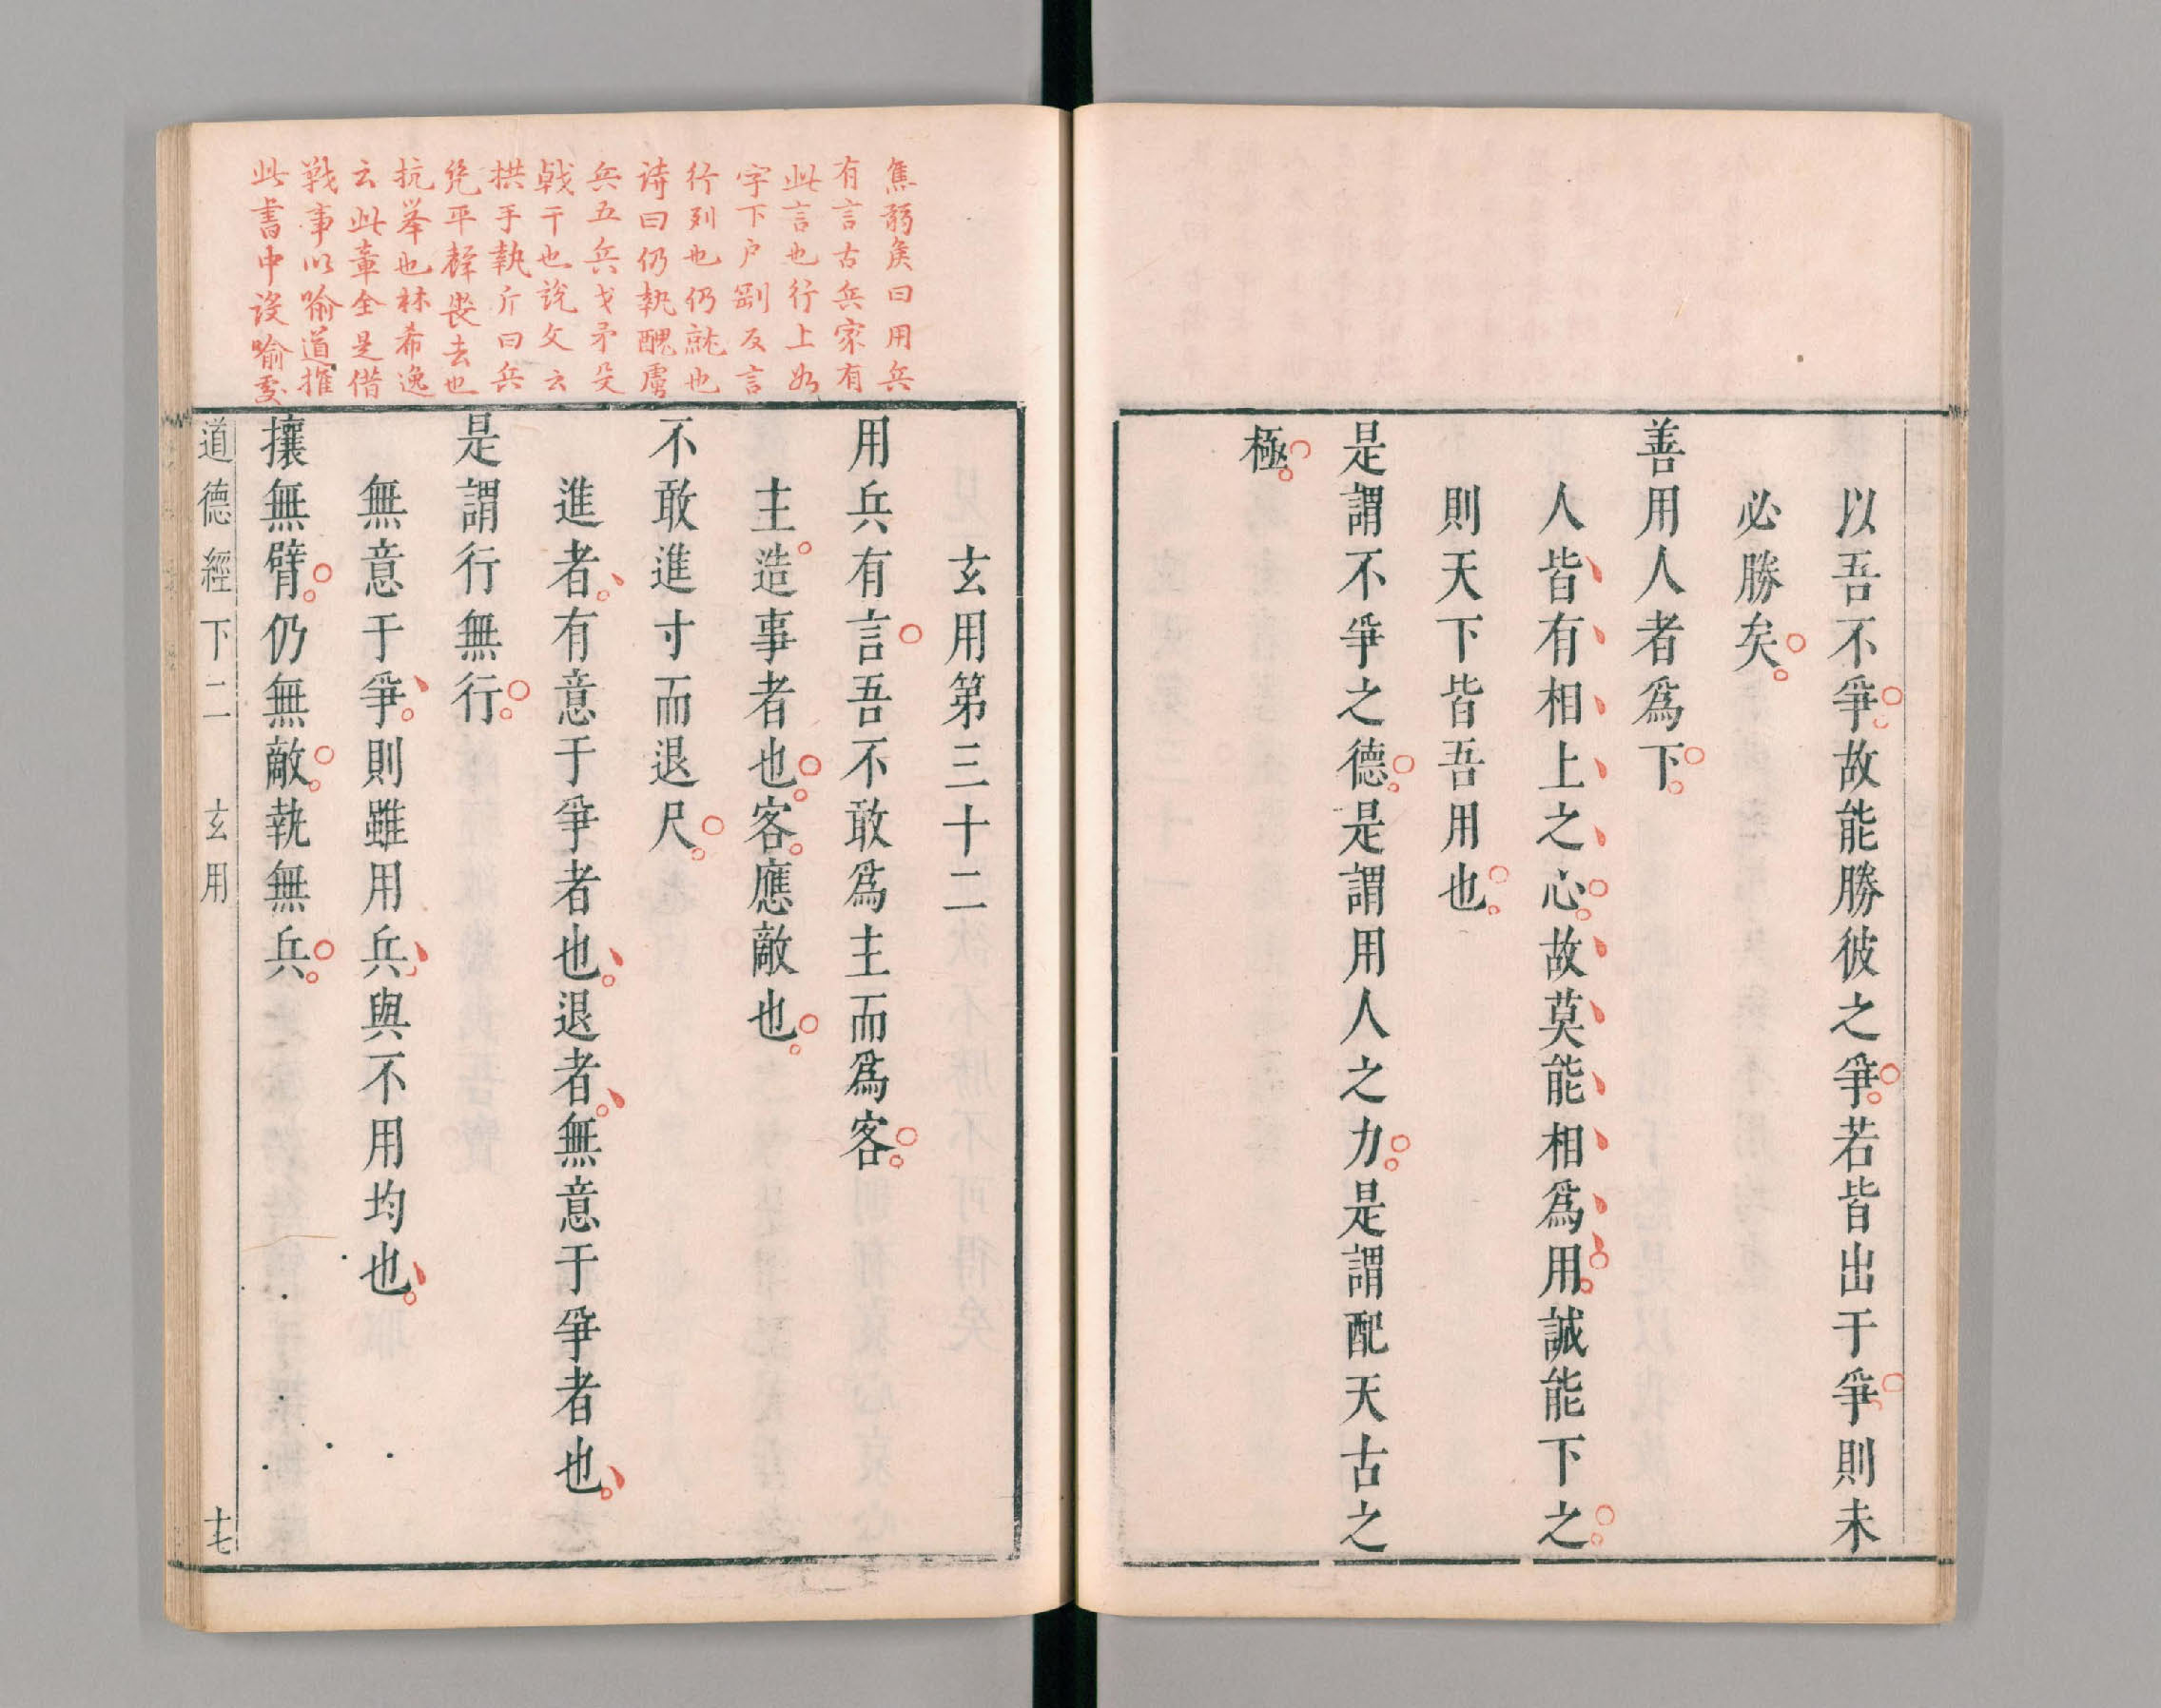 以吾不爭故能勝彼之爭若皆出于爭則未
必勝矣
善用人者爲下
人皆有相上之心故莫能相爲用誠能下之
則天下皆吾用也
是謂不爭之德是謂用人之力是謂配天古之
極
焦弱矦曰用兵
有言古兵家有
此言也行上如
字下户剛反言
行列也仍就也
詩曰仍執醜虜
兵五兵戈矛殳
戟干也說文云
拱手執斤曰兵
兂平聲喪去也
抗举也林希逸
云此章全是借
戰事以喻道推
此書中設喻處
玄用第三十二
用兵有言吾不敢爲主而爲客
主造事者也客應敵也
不敢進寸而退尺
進者有意于爭者也退者無意于爭者也
是謂行無行
無意于爭則雖用兵與不用均也
攘無臂仍無敵執無兵
道德經下二 玄用 十七